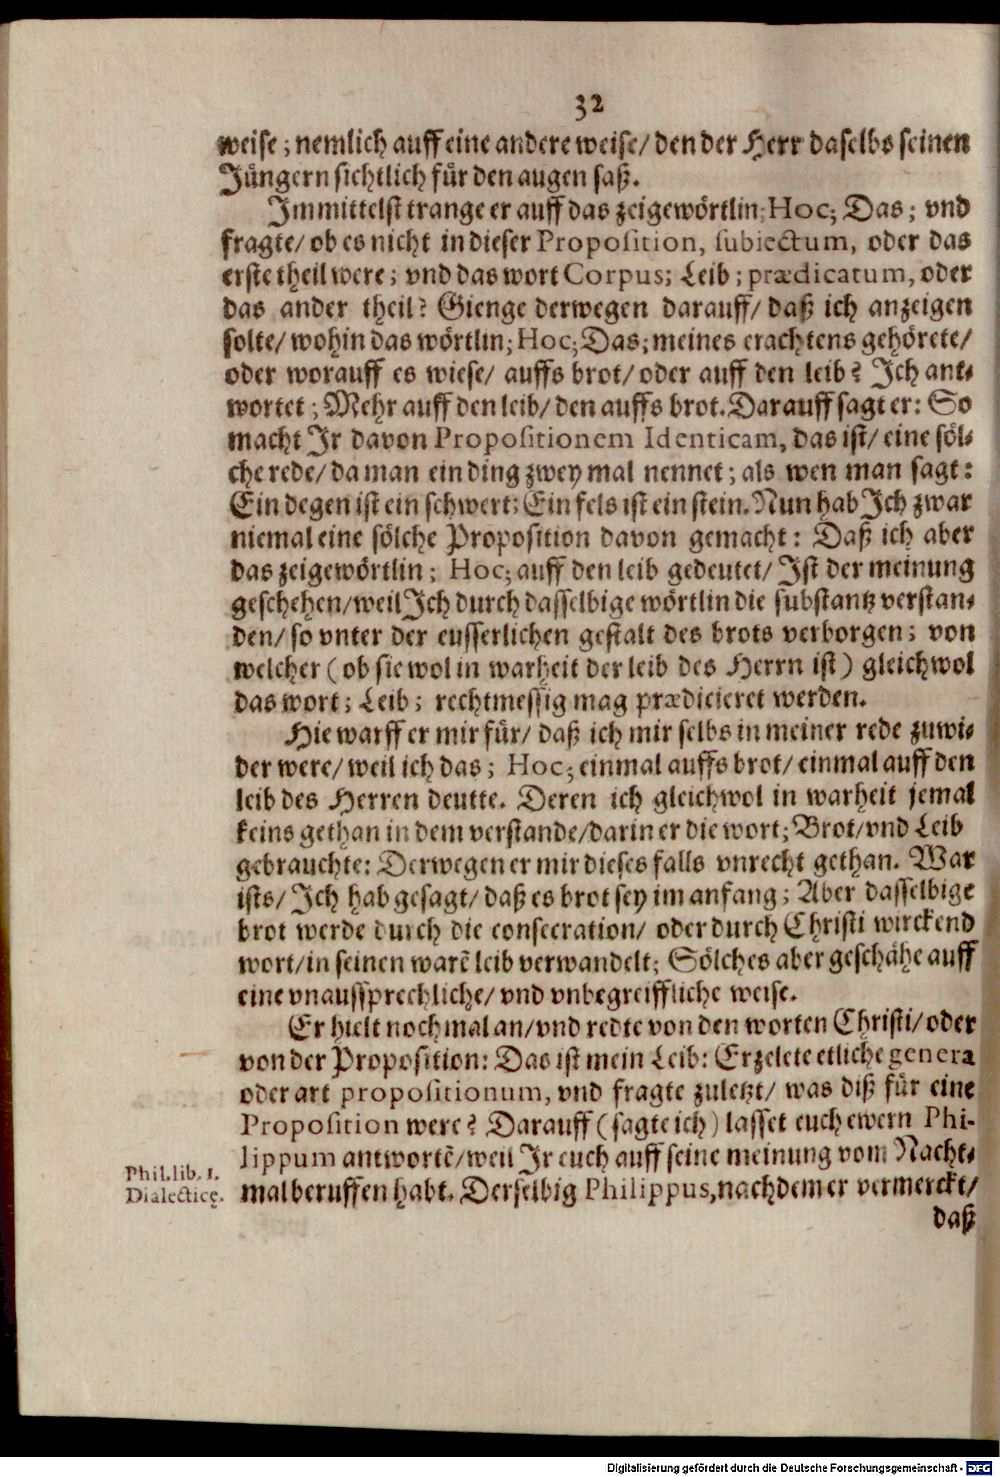 32
weise; nemlich auff eine andere weise/ den der Herr daselbs seinen
Jüngern sichtlich für den augen saß.
Immittelst trange er auff das zeigewörtlin; Hoc; Das; vnd
fragte/ ob es nicht in dieser Proposition, subiectum, oder das
erste theil were; vnd das wort Corpus; Leib; prædicatum, oder
das ander theil? Gienge derwegen darauff/ daß ich anzeigen
solte/ wohin das wörtlin; Hoc; Das; meines erachtens gehörete/
oder worauff es wiese/ auffs brot/ oder auff den leib? Ich ant-
wortet; Mehr auff den leib/ den auffs brot. Darauff sagt er: So
macht Ir davon Propositionem Identicam, das ist/ eine söl-
che rede/ da man ein ding zwey mal nennet; als wen man sagt:
Ein degen ist ein schwert; Ein fels ist ein stein. Nun hab Ich zwar
niemal eine sölche Proposition davon gemacht: Daß ich aber
das zeigewörtlin; Hoc; auff den leib gedeutet/ Ist der meinung
geschehen/ weil Ich durch dasselbige wörtlin die substantz verstan-
den/ so vnter der eusserlichen gestalt des brots verborgen; von
welcher (ob sie wol in warheit der leib des Herrn ist) gleichwol
das wort; Leib; rechtmessig mag prædicieret werden.
Hie warff er mir für/ daß ich mir selbs in meiner rede zuwi-
der were/ weil ich das; Hoc; einmal auffs brot/ einmal auff den
leib des Herren deutte. Deren ich gleichwol in warheit jemal
keins gethan in dem verstande/ darin er die wort; Brot/ vnd Leib
gebrauchte: Derwegen er mir dieses falls vnrecht gethan. War
ists/ Ich hab gesagt/ daß es brot sey im anfang; Aber dasselbige
brot werde durch die consecration/ oder durch Christi wirckend
wort/ in seinen warē leib verwandelt; Sölches aber geschähe auff
eine vnaussprechliche/ vnd vnbegreiffliche weise.
Er hielt noch mal an/ vnd redte von den worten Christi/ oder
von der Proposition: Das ist mein Leib: Erzelete etliche genera
oder art propositionum, vnd fragte zuletzt/ was diß für eine
Proposition were? Darauff (sagte ich) lasset euch ewern Phi-
lippum antwortē/ weil Ir euch auff seine meinung vom Nacht-
mal beruffen habt. Derselbig Philippus, nachdem er vermerckt/
Phil. lib. 1.
Dialecticę.
daß
Digitalisierung gefördert durch die Deutsche Forschungsgemeinschaft - DFG